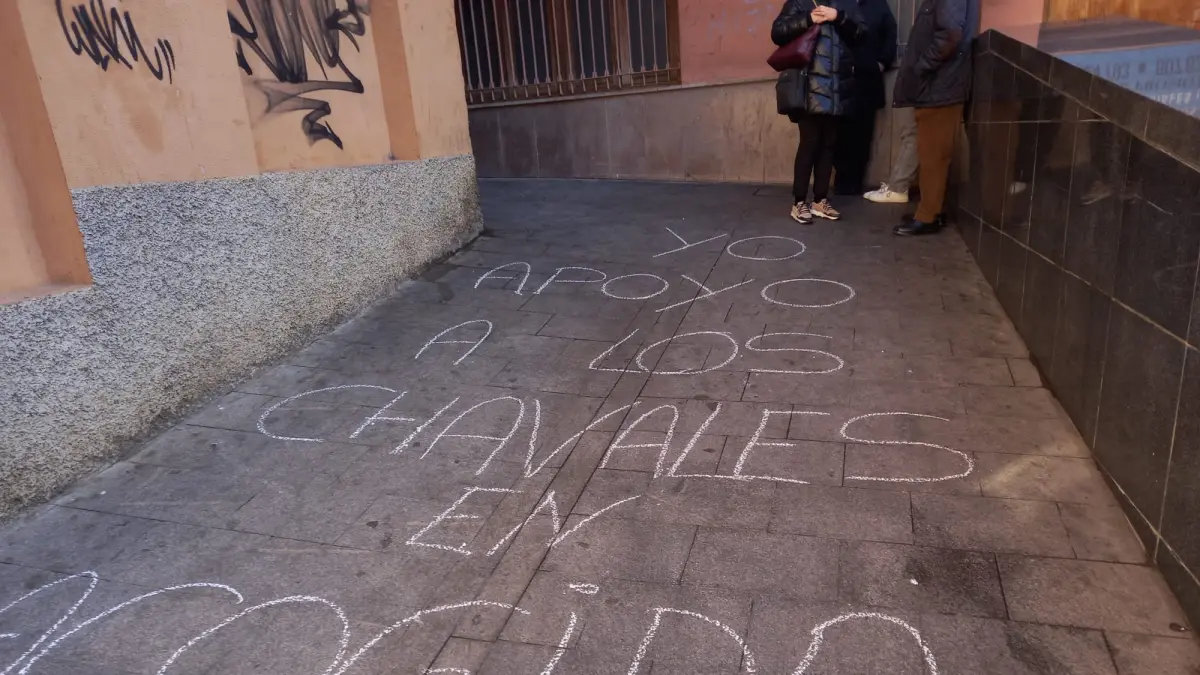 YO
APOYO
A LOS
CHAVALES
EN